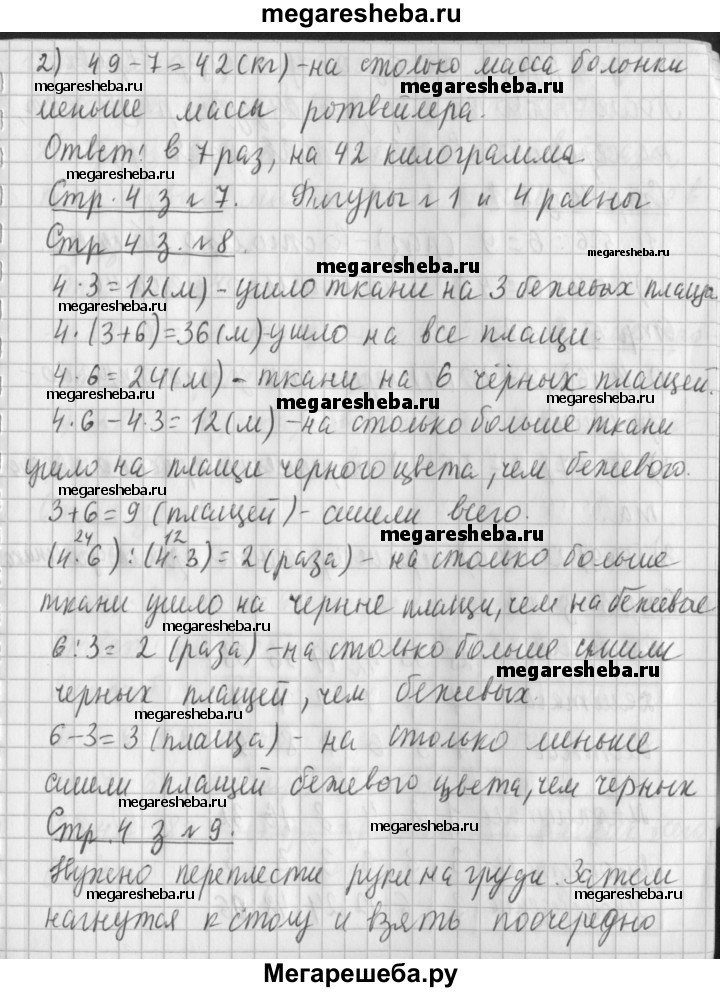 megaresheba.ru
2) 49-7=42(кг)-на столько масса болонки
megaresheba.ru
megaresheba.ru
меньше массы ротвейлера.
Ответ! в 7 раз, на 42 килограмма
megaresheba.ru
Стр. 4 з №7. Фигуры №1 и 4 равны
Стр 4 з. №8.
megaresheba.ru
megaresheba.ru
4·3=12(м)-ушло ткани на 3 бежевых плаща
megaresheba.ru
4·(3+6)=36(м)-ушло на все плащи.
4·6=24(м)-ткани на 6 чёрных плащей.
megaresheba.ru
megaresheba.ru
4·6-4·3=12(м)-на столько больше ткани
ушло на плащи черного цвета, чем бежевого.
megaresheba.ru
3+6=9 (плащей)-сшили всего.
megaresheba.ru
24 12
(4·6):(4·3)=2(раза)-на столько больше
ткани ушло на черные плащи, чем на бежевые
megaresheba.ru
6:3=2 (раза)-на столько больше сшили
megaresheba.ru
черных плащей, чем бежевых.
megaresheba.ru
6-3=3 (плаща)-на столько меньше
сшили плащей бежевого цвета, чем черных
megaresheba.ru
Стр. 4 з №9.
megaresheba.ru
Нужно переплести руки на груди. Затем
megaresheba.ru
megaresheba.ru
нагнутся к столу и взять поочередно
Мегарешеба.ру